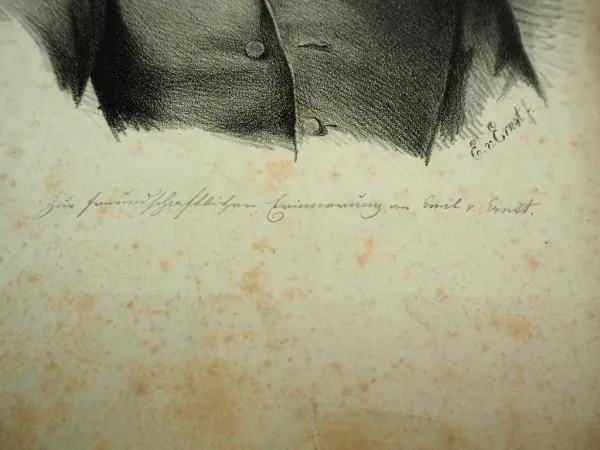 E. v. Ernst f.
Zur freundschaftlichen Erinnerung an Emil v. Ernst.